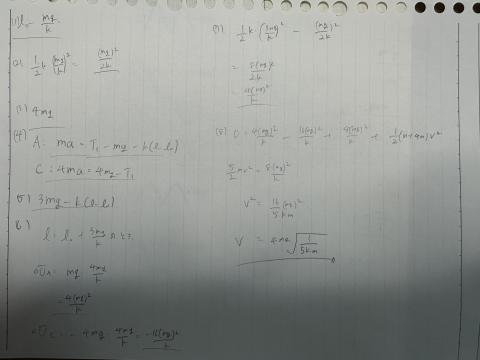 (1) l₀ - mg/k
(2) 1/2 k (mg/k)² = (mg)²/2k
(3) 4mg
(4) A: ma = T₁ - mg - k(l-l₀)
C: 4ma = 4mg - T₁
(5) 3mg - k(l-l₀)
(6)
l = l₀ + 3mg/k のとき、
ΔU_A = mg 4mg/k
= 4(mg)²/k
ΔU_C = - 4mg · 4mg/k = -16(mg)²/k
(7) 1/2 k · (3mg/k)² - (mg)²/2k
= 8(mg)²/2k
= 4(mg)²/k
(8) 0 = 4(mg)²/k - 16(mg)²/k + 4(mg)²/k + 1/2 (m+4m) v²
5/2 mv² = 8(mg)²/k
v² = 16(mg)²/5km
v = 4mg √(1/5km)